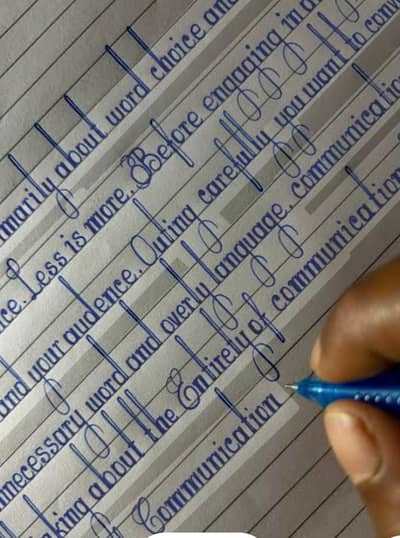 marily about word choice and
ce. Less is more. Before engaging in a
and your audience. Outing carefully you want to com
nnecessary word and overly language. communicatio
king about the Entirely of communication
Communication